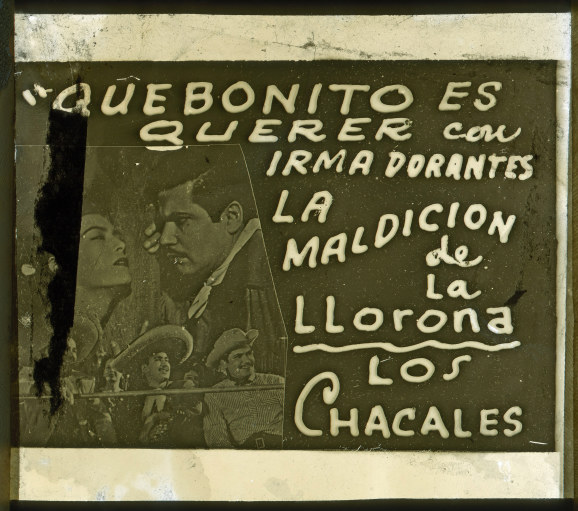 "QUE BONITO ES
QUERER con
IRMA DORANTES
LA
MALDICION
de
La
LLorona
LOS
CHACALES